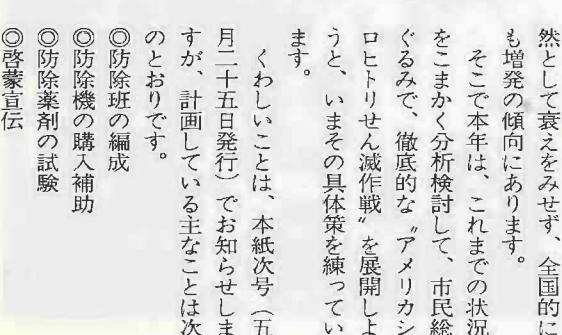 然として衰えをみせず、全国的に
も増発の傾向にあります。
そこで本年は、これまでの状況
をこまかく分析検討して、市民総
ぐるみで、徹底的な〝アメリカシ
ロヒトリせん滅作戦〟を展開しよ
うと、いまその具体策を練ってい
ます。
くわしいことは、本紙次号（五
月二十五日発行）でお知らせしま
すが、計画している主なことは次
のとおりです。
◎防除班の編成
◎防除機の購入補助
◎防除薬剤の試験
◎啓蒙宣伝